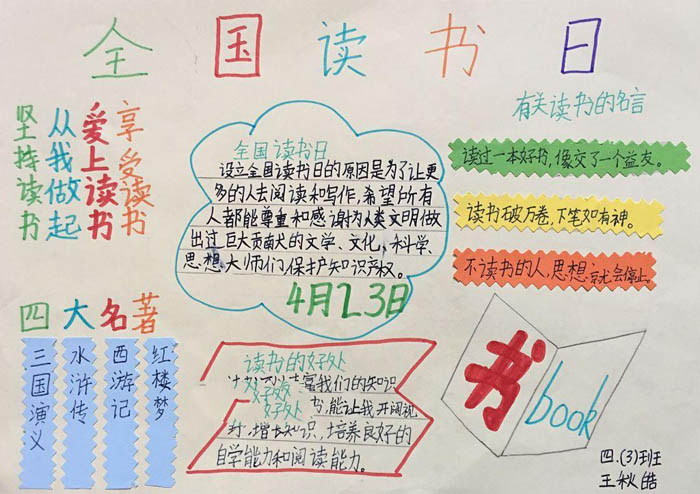 全国读书日
享受读书
爱上读书
从我做起
坚持读书
全国读书日
设立全国读书日的原因是为了让更
多的人去阅读和写作，希望所有
人都能尊重和感谢为人类文明做
出过巨大贡献的文学、文化、科学、
思想大师们，保护知识产权。
4月23日
有关读书的名言
读过一本好书，像交了一个益友。
读书破万卷，下笔如有神。
不读书的人，思想就会停止。
四大名著
红楼梦
西游记
水浒传
三国演义
读书的好处
我们的知识
好处
书，能让我开阔视
增长知识，培养良好的
自学能力和阅读能力。
书
book
四.(3)班
王秋皓